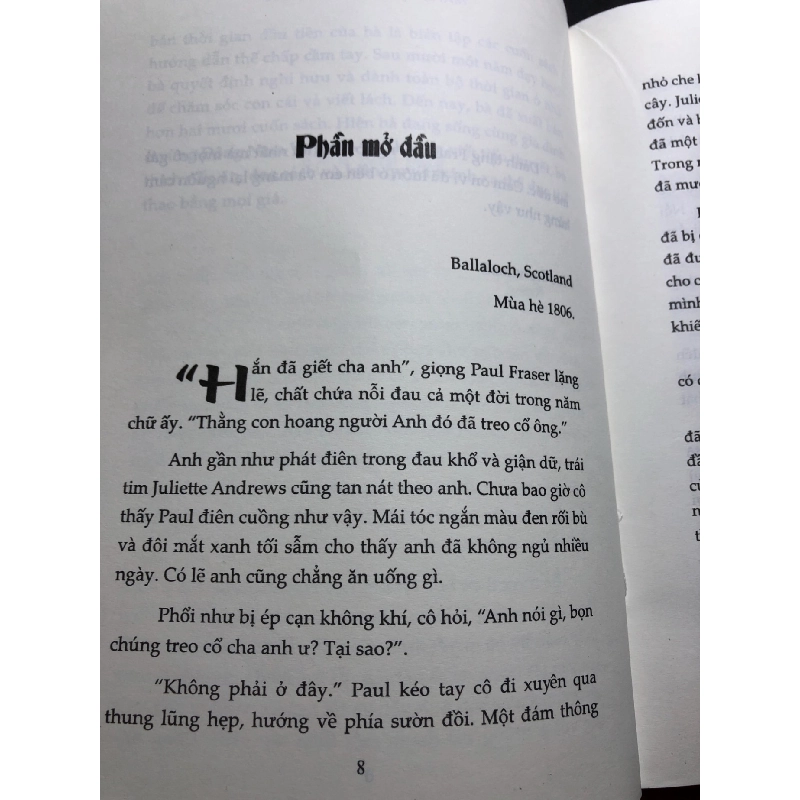 Phần mở đầu
Ballaloch, Scotland
Mùa hè 1806.
“Hắn đã giết cha anh”, giọng Paul Fraser lặng
lẽ, chất chứa nỗi đau cả một đời trong năm
chữ ấy. “Thằng con hoang người Anh đó đã treo cổ ông.”
Anh gần như phát điên trong đau khổ và giận dữ, trái
tim Juliette Andrews cũng tan nát theo anh. Chưa bao giờ cô
thấy Paul điên cuồng như vậy. Mái tóc ngắn màu đen rối bù
và đôi mắt xanh tối sẫm cho thấy anh đã không ngủ nhiều
ngày. Có lẽ anh cũng chẳng ăn uống gì.
Phổi như bị ép cạn không khí, cô hỏi, “Anh nói gì, bọn
chúng treo cổ cha anh ư? Tại sao?”.
“Không phải ở đây.” Paul kéo tay cô đi xuyên qua
thung lũng hẹp, hướng về phía sườn đồi. Một đám thông
8
nhỏ che
cây. Julie
đốn và
đã một
Trong
đã
đã bị
đã
cho
mình
khiế
có
đã